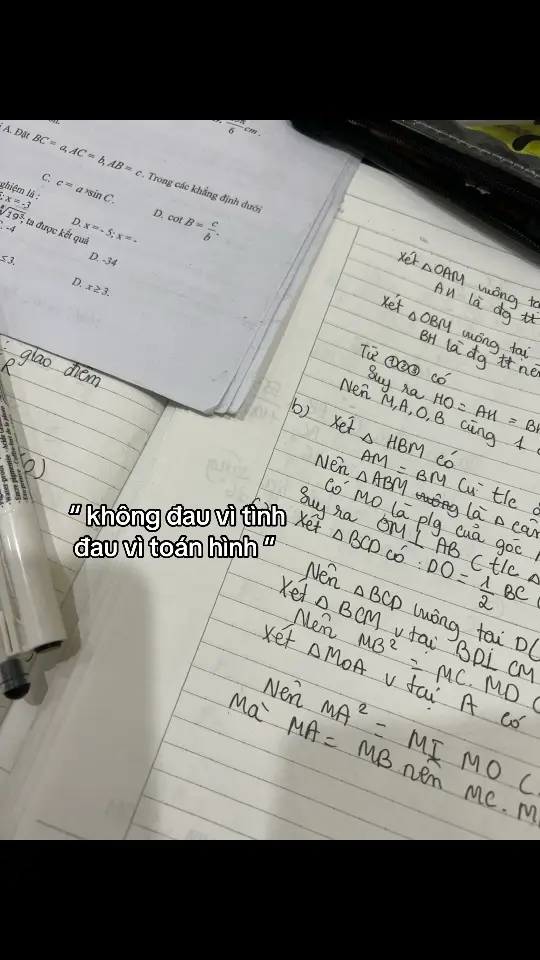 6 cm.
A. Đặt BC = a, AC = b, AB = c. Trong các khẳng định dưới
C. c = a sin C.
D. cot B = c/b.
nghiệm là :
x = -3
D. x = - 5; x = -
ta được kết quả
-4
D. -34
≤3.
D. x ≥ 3.
giao điểm
" không đau vì tình
đau vì toán hình "
Xét △OAM vuông tạ
AH là đg tt
Xét △OBM vuông tại
BH là đg tt nên
Từ ①②③ có
Suy ra HO = AH = BH
Nên M, A, O, B cùng 1
b) Xét △ HBM có
AM = BM Cù t/c
Nên △ABM vuông là △ cân
Có MO là p/g của góc
Suy ra OM ⊥ AB C t/c △
Xét △BCD có : DO = 1/2 BC
Nên △BCD vuông tại D
Xét △ BCM v tại B BD⊥ CM
Nên MB² = MC. MD
Xét △MOA v tại A có
Nên MA² = MI MO
Mà MA = MB nên MC. M